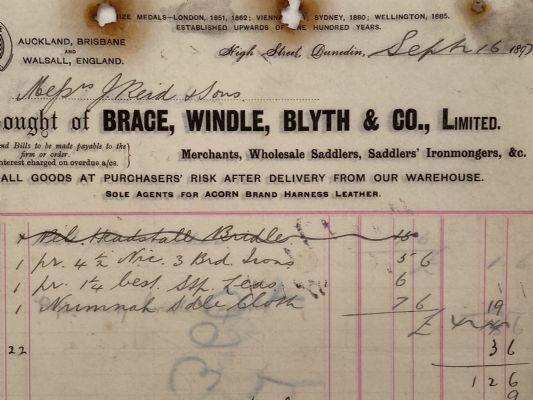 PRIZE MEDALS—LONDON, 1851, 1862; VIENNA, SYDNEY, 1880; WELLINGTON, 1885.
ESTABLISHED UPWARDS OF ONE HUNDRED YEARS.
AUCKLAND, BRISBANE
AND
WALSALL, ENGLAND.
High Street, Dunedin, Sept 16 189
Messrs J Reid & Sons
Bought of BRACE, WINDLE, BLYTH & CO., LIMITED.
and Bills to be made payable to the
firm or order.
Interest charged on overdue a/cs.
Merchants, Wholesale Saddlers, Saddlers' Ironmongers, &c.
ALL GOODS AT PURCHASERS' RISK AFTER DELIVERY FROM OUR WAREHOUSE.
SOLE AGENTS FOR ACORN BRAND HARNESS LEATHER.
Headstall Bridle 15
1 pr. 4½ Nic. 3 Brd Irons 5 6
1 pr. 1¼ best. Stp. Leas 6
1 Numnah Sdle Cloth 7 6 19
£
22 3 6
1 2 6
9